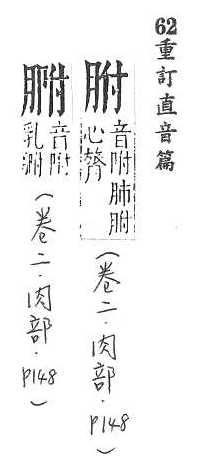 62重訂直音篇
胕 音附肺胕
心
(卷二·肉部·P148)
音附
乳
(卷二·肉部·P148)